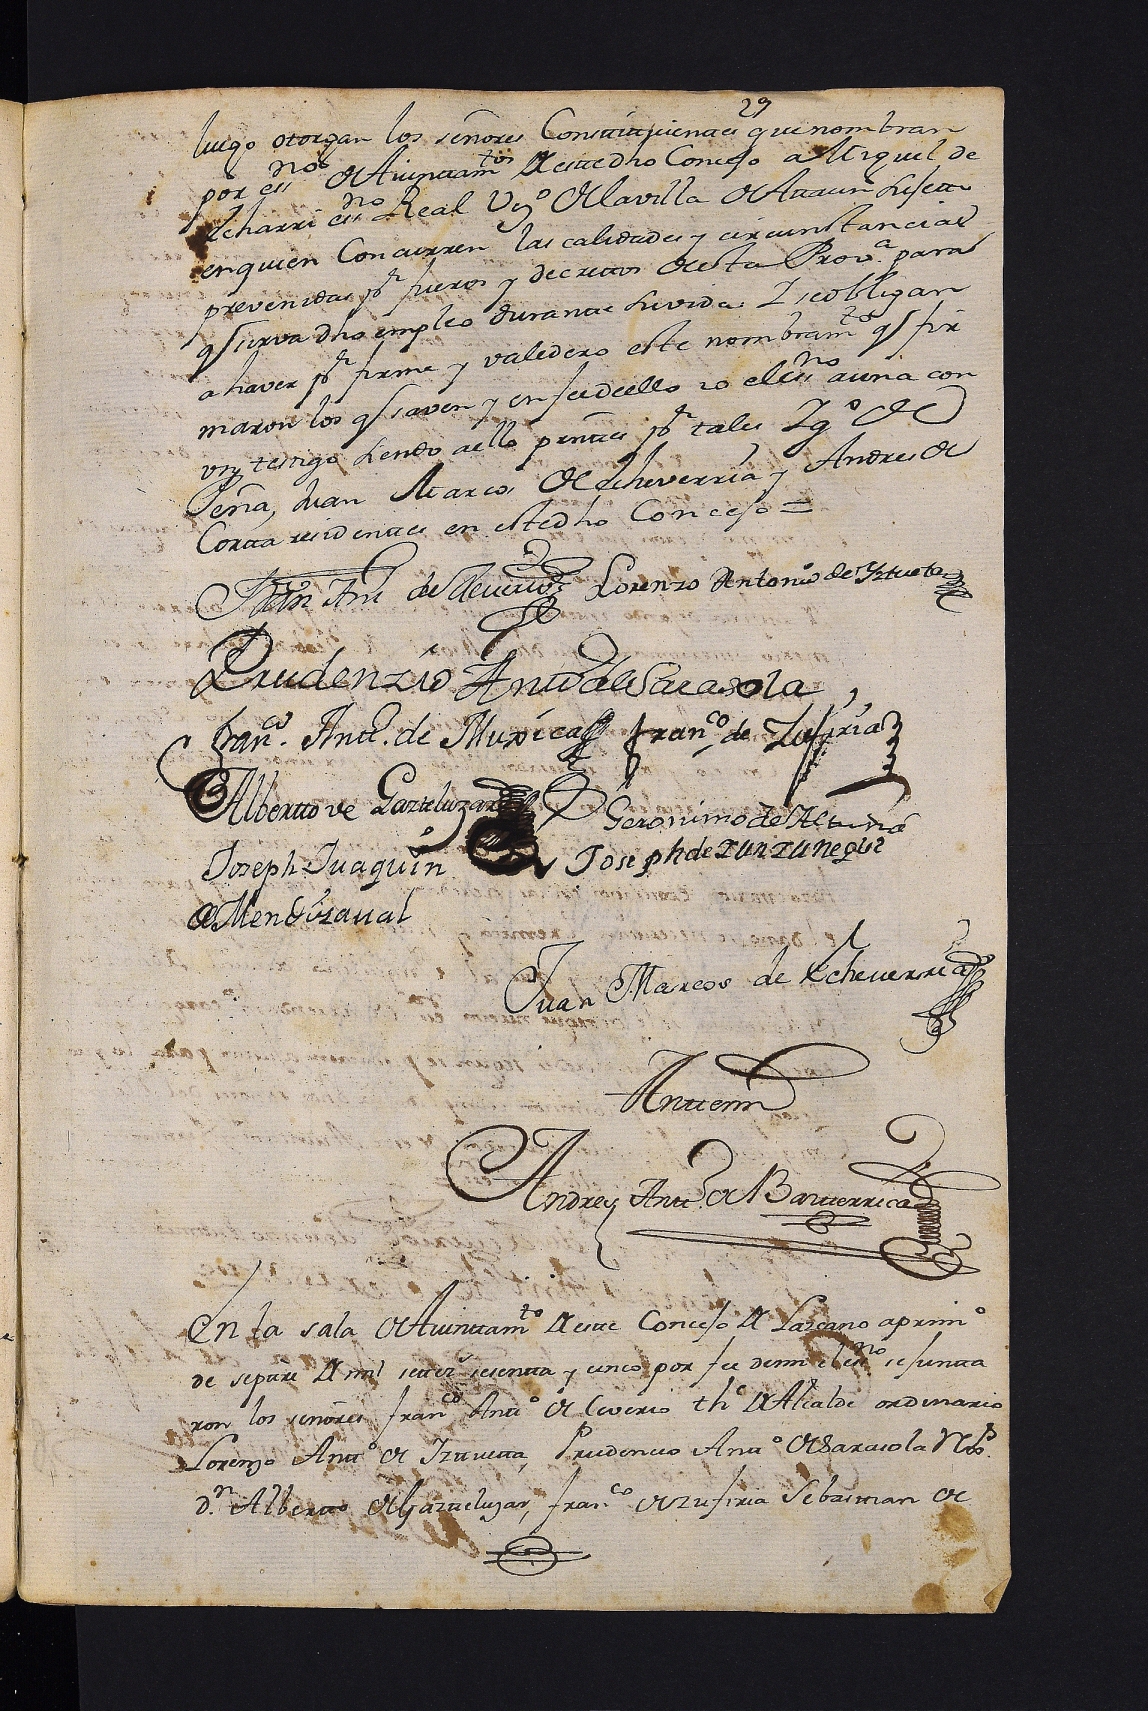 29
luego otorgan los señores Constituyentes que nombran
por essno de Aiuntamtos de este dho Concejo a Miguel de
Echarri essno Real Vzo de la villa de Attaun sujetto
en quien Concurren las calidades y circunstancias
prevenidas pr fueros y decretos de esta Prova. para
q sirva dho empleo durante su vida: Y se obligan
a haver pr firme y valedero este nombramto q fir
maron los q saven y en fee de ello yo el essno a una con
un testigo siendo a ello prntes pr tales Ygo de
Peña, Juan Marcos de Echeverria y Andres de
Corta residentes en este dho Concejo =
Lorenzo Antonio de Yztueta
Prudenzio Anto de Sarasola
Franco. Antt. de Muxica Franco de Zufiria
Albertto de Gazteluzar
Geronimo de Altuna
Joseph Juaquin Joseph de Zunzunegui
de Mendizaval
Juan Marcos de Echeverria
Antte mi
Andres Antto de Barrterrica
En la sala de Aiuntamto de este Concejo de Lazcano a primo
de septre de mil settezs sesentta y cinco por fee de mi el essno se junta
ron los señores Franco Antto de Ceverio the de Alcalde ordenario
Lorenzo Antto de Iztuetta, Prudencio Anto de Sarasola
dn. Albertto de Gazteluzar, Franco de Zufiria Sebastian de